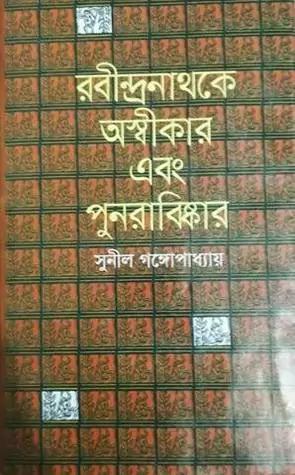 রবীন্দ্রনাথকে
অস্বীকার
এবং
পুনরাবিষ্কার
সুনীল গঙ্গোপাধ্যায়